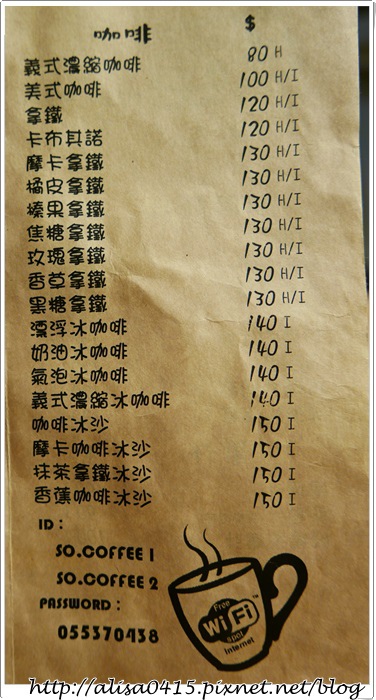 咖啡 $
義式濃縮咖啡 80 H
美式咖啡 100 H/I
拿鐵 120 H/I
卡布其諾 120 H/I
摩卡拿鐵 130 H/I
橘皮拿鐵 130 H/I
榛果拿鐵 130 H/I
焦糖拿鐵 130 H/I
玫瑰拿鐵 130 H/I
香草拿鐵 130 H/I
黑糖拿鐵 130 H/I
漂浮冰咖啡 140 I
奶油冰咖啡 140 I
氣泡冰咖啡 140 I
義式濃縮冰咖啡 140 I
咖啡冰沙 150 I
摩卡咖啡冰沙 150 I
抹茶拿鐵冰沙 150 I
香蕉咖啡冰沙 150 I
ID：
SO.COFFEE 1
SO.COFFEE 2
PASSWORD：
055370438
Free
Wi Fi
Internet
http://alisa0415.pixnet.net/blog